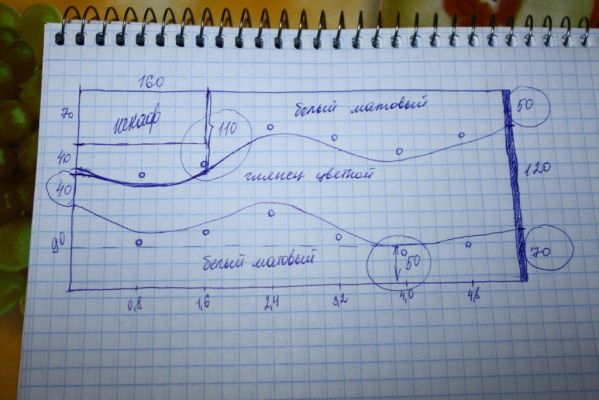 160
70
шкаф
белый матовый
50
110
40
глянец цветной
120
40
90
белый матовый
50
70
0,8
1,6
2,4
3,2
4,0
4,8